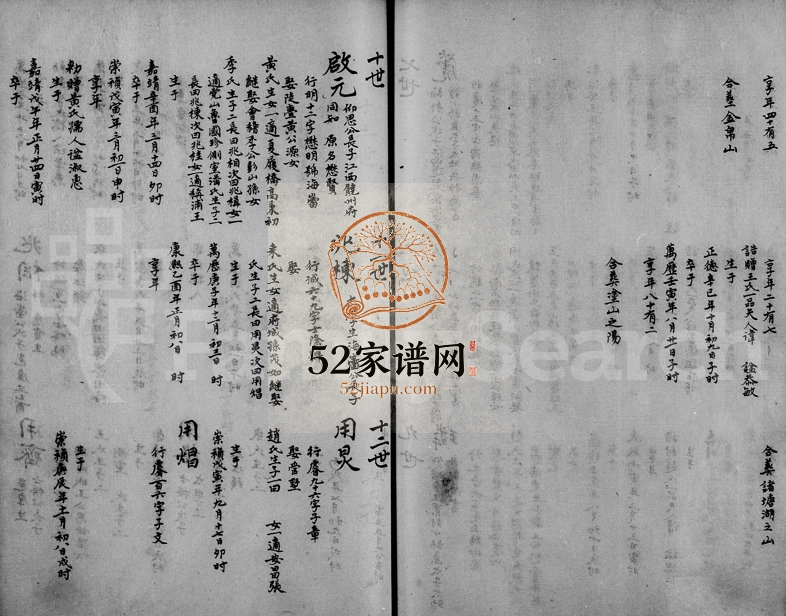 享年四十有五
合葬金帛山
享年二十有七
誥贈王氏一品夫人諱 諡恭敏
生于
正德辛巳年十月初九日子時
卒于
萬歷壬寅年八月廿日子時
享年八十有二
合葬塗山之陽
合葬諸塘湖之山
十世
啟元
仰思公長子江西饒州府
同知 原名懋賢
行明十二字懋明號海嶠
娶陡亹黃公源女
黃氏生女一適夏履橋高東初
繼娶會稽李公彭山孫女
季氏生子二長曰兆相次曰兆楨女一
適党山魯國珍側室潘氏生子二
長曰兆棟次曰兆桂女一適稱浦王
生于
嘉靖辛酉年三月十四日卯時
卒于
崇禎戊寅年三月初一日申時
享年
勅贈黃氏孺人諡淑惠
生于
嘉靖戊午年正月廿四日寅時
卒于
十一世
兆棟
娶
來氏生女適府城孫茂如繼娶
氏生子二長曰用炅次曰用熠
生于
萬曆庚子年十二月初三日 時
卒于
康熙乙酉年正月初八日 時
享年
十二世
用炅
行慶九十六字子章
娶當墅
趙氏生子一曰 女一適安昌張
生于
崇禎戊寅年九月十七日卯時
用熠
行慶百六字子文
生于
崇禎庚辰年十一月初八日戌時
52家谱网
52jiapu.com
FamilySearch